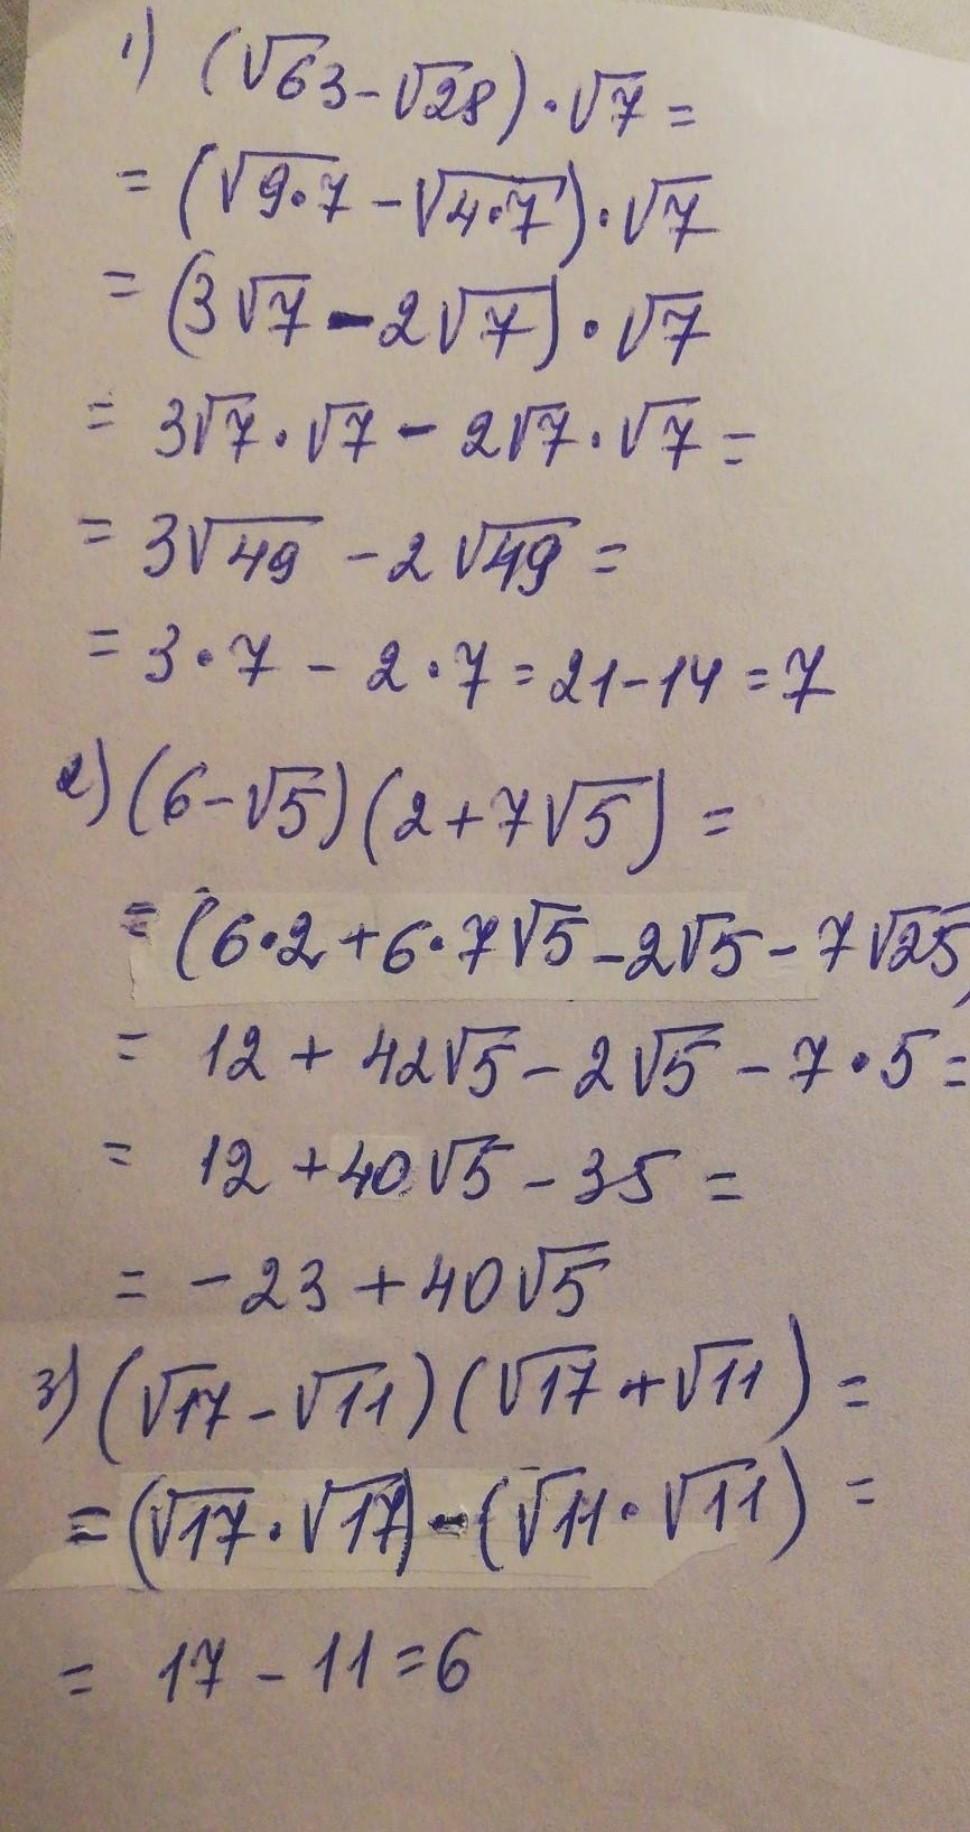 1) (√63-√28)·√7=
= (√9·7 - √4·7)·√7
= (3√7 - 2√7)·√7
= 3√7·√7 - 2√7·√7=
= 3√49 - 2√49=
= 3·7 - 2·7=21-14=7
2) (6-√5)(2+7√5)=
= (6·2+6·7√5-2√5-7√25)
= 12 + 42√5 - 2√5 - 7·5=
= 12 +40√5 - 35 =
= -23 + 40√5
3) (√17-√11)(√17+√11)=
=(√17·√17)-(√11·√11)=
= 17 - 11=6